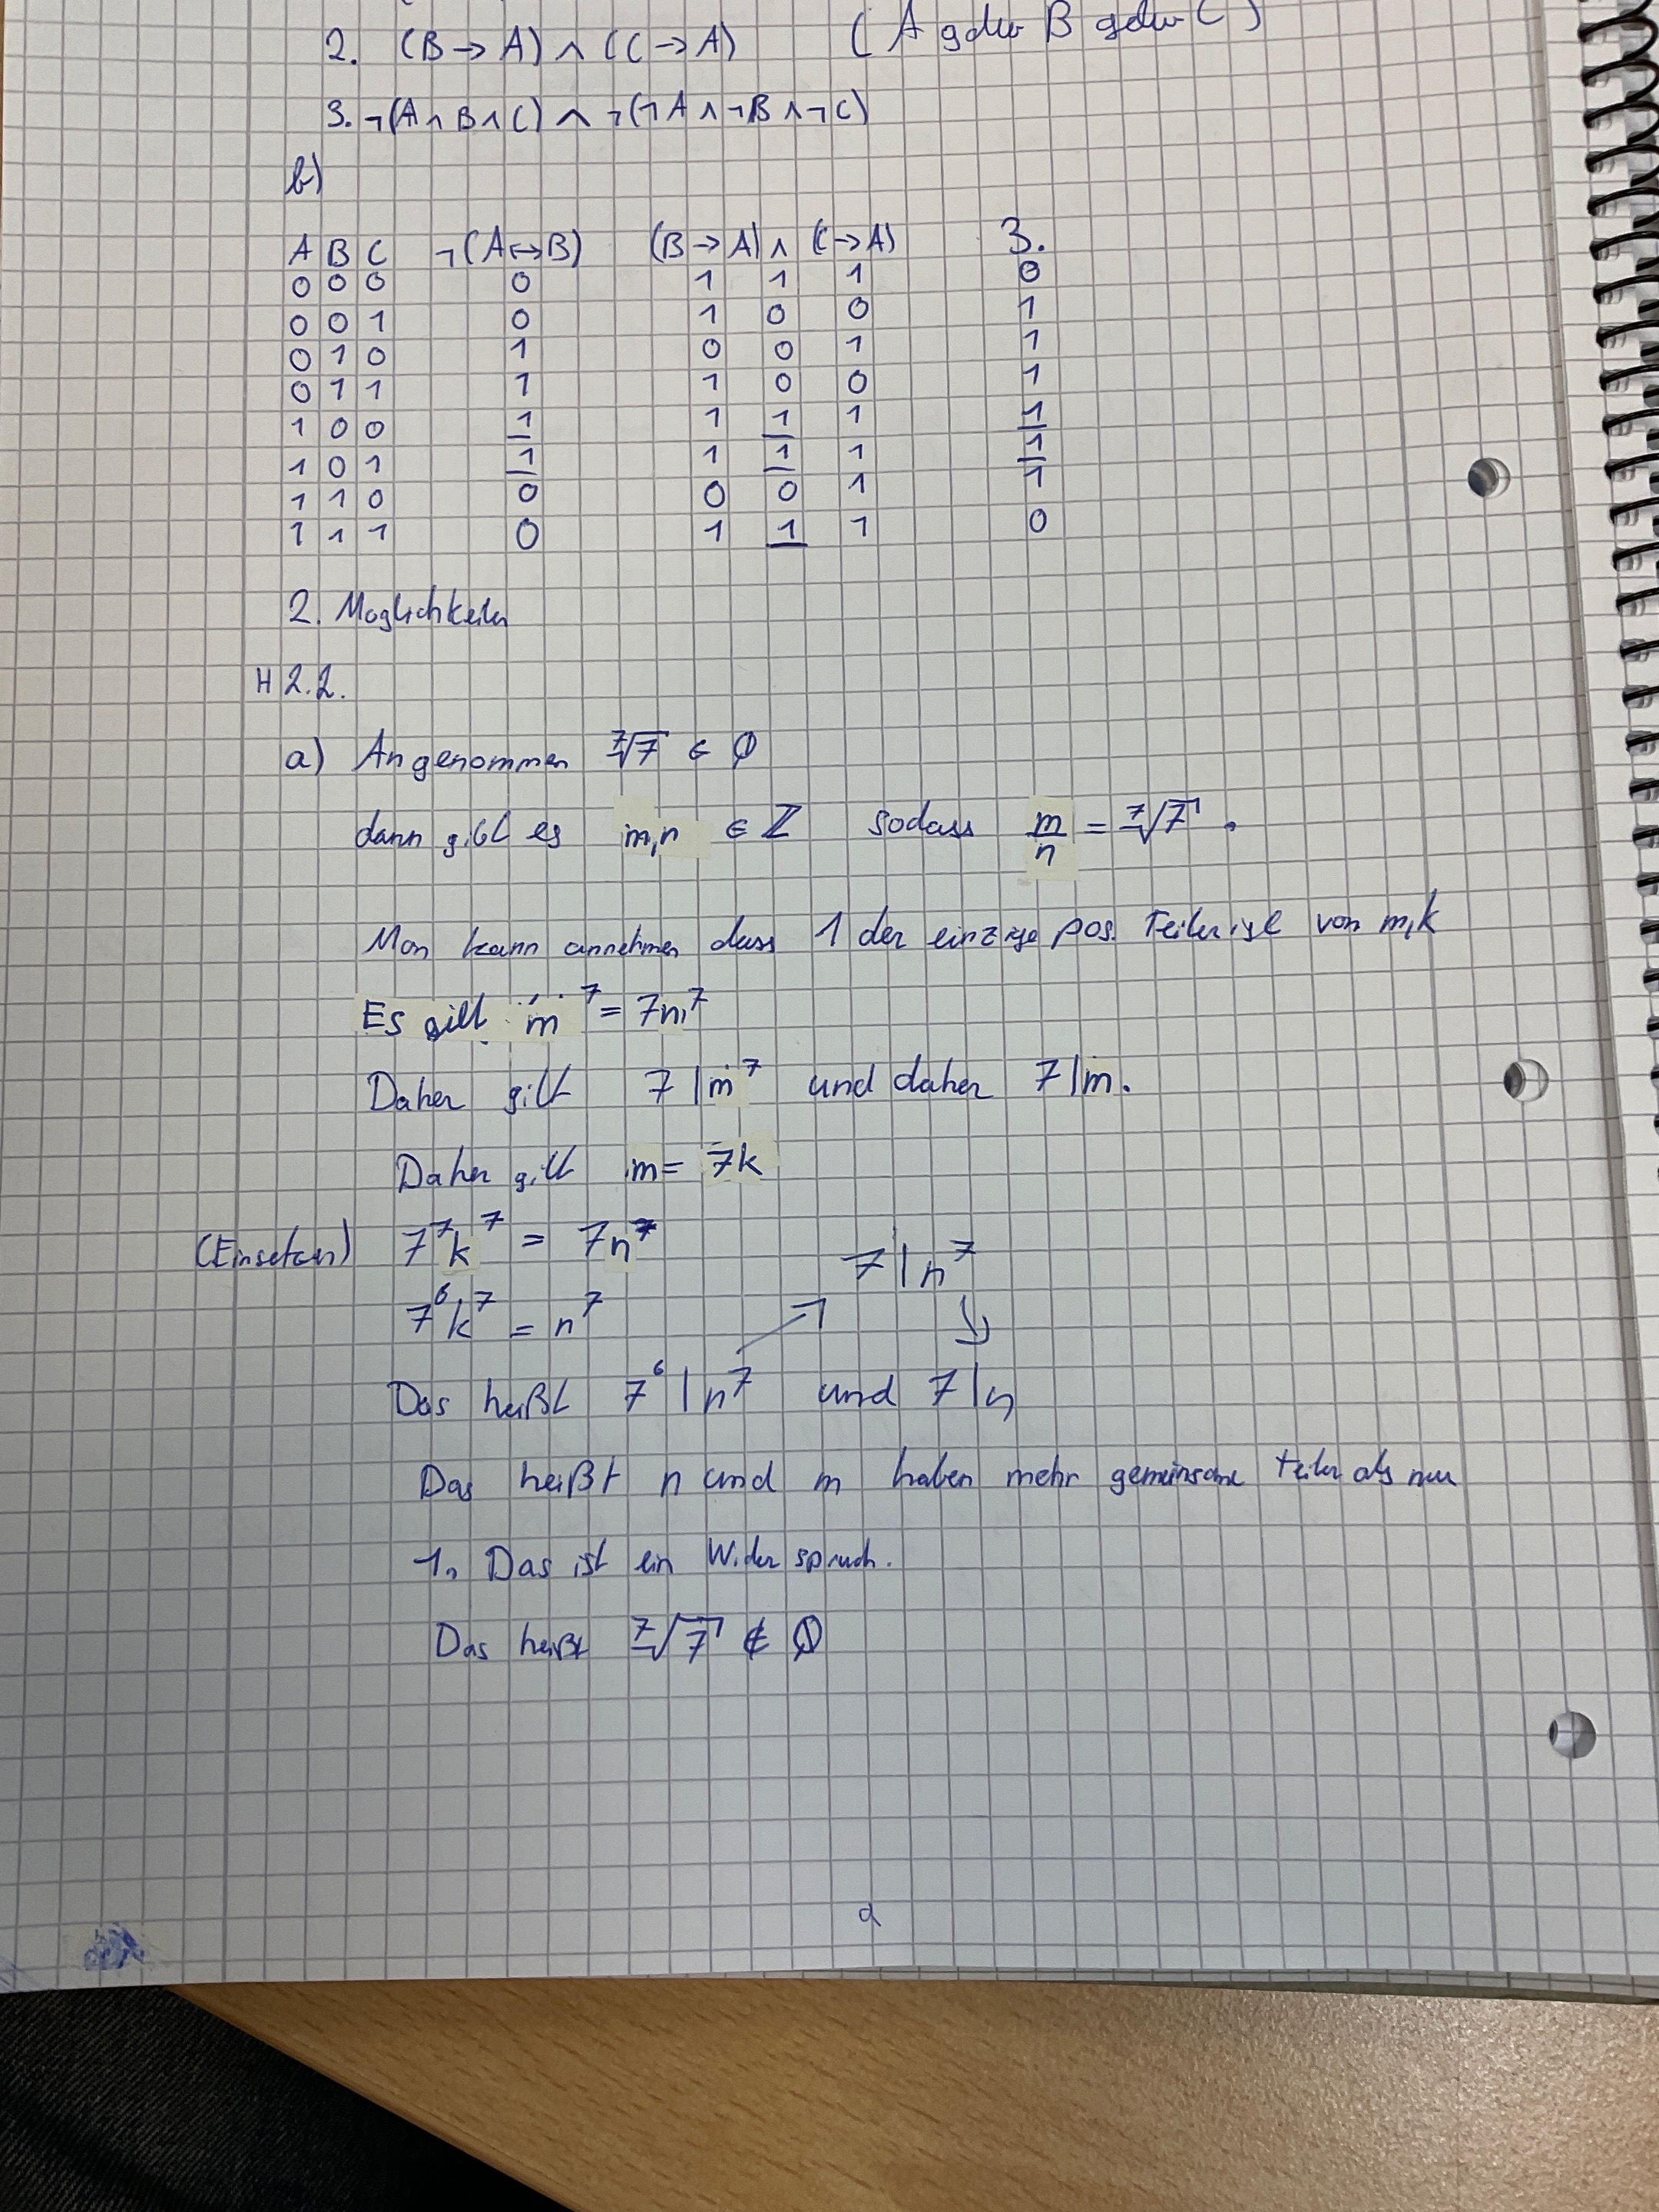 2. (B → A) ∧ (C → A) (A gdw B gdw C)
3. ¬(A ∧ B ∧ C) ∧ ¬(¬A ∧ ¬B ∧ ¬C)
b)
A B C ¬(A ↔ B) (B → A) ∧ (C → A) 3.
0 0 0 0 1 1 1 0
0 0 1 0 1 0 0 1
0 1 0 1 0 0 1 1
0 1 1 1 1 0 0 1
1 0 0 1 1 1 1 1
1 0 1 1 1 1 1 1
1 1 0 0 0 0 1 1
1 1 1 0 1 1 1 0
2. Möglichkeiten
H 2.2.
a) Angenommen ⁷√7 ∈ ℚ
dann gibt es m,n ∈ ℤ sodass m/n = ⁷√7.
Man kann annehmen dass 1 der einzige pos. Teiler ist von m,k
Es gilt m⁷ = 7n⁷
Daher gilt 7 | m⁷ und daher 7 | m.
Daher gilt m = 7k
(Einsetzen) 7⁷k⁷ = 7n⁷
7 | n⁷
7⁶k⁷ = n⁷
Das heißt 7⁶ | n⁷ und 7 | n
Das heißt n und m haben mehr gemeinsame teiler als nur
1. Das ist ein Widerspruch.
Das heißt ⁷√7 ∉ ℚ
a